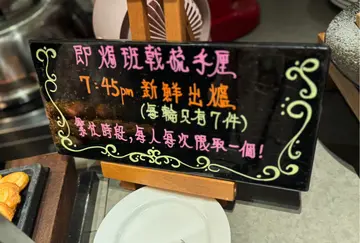 即焗班戟梳乎厘
7:45pm 新鮮出爐
(每輪只有7件)
繁忙時段，每人每次限取一個！